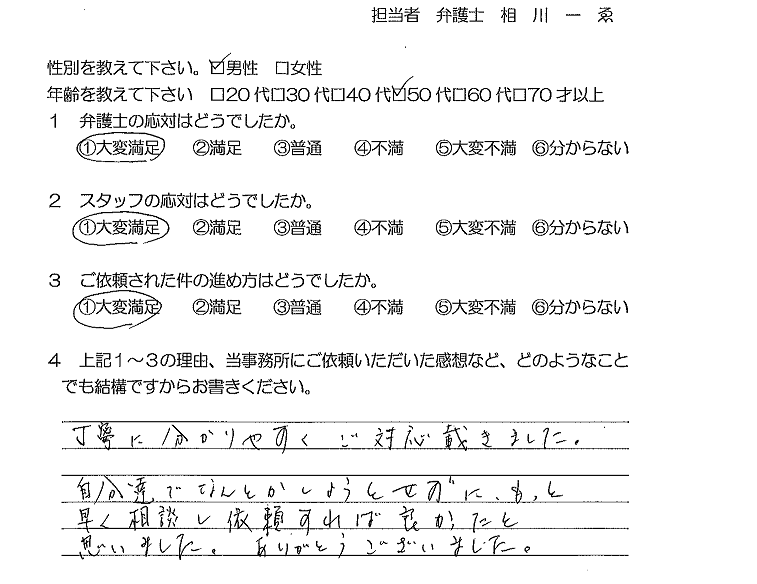 担当者 弁護士 相 川 一 ゑ
性別を教えて下さい。☑男性 □女性
年齢を教えて下さい □20代□30代□40代☑50代□60代□70才以上
1 弁護士の応対はどうでしたか。
①大変満足 ②満足 ③普通 ④不満 ⑤大変不満 ⑥分からない
2 スタッフの応対はどうでしたか。
①大変満足 ②満足 ③普通 ④不満 ⑤大変不満 ⑥分からない
3 ご依頼された件の進め方はどうでしたか。
①大変満足 ②満足 ③普通 ④不満 ⑤大変不満 ⑥分からない
4 上記1~3の理由、当事務所にご依頼いただいた感想など、どのようなこと
でも結構ですからお書きください。
丁寧に分かりやすくご対応戴きました。
自分達でなんとかしようとせずに、もっと
早く相談し依頼すれば良かったと
思いました。ありがとうございました。